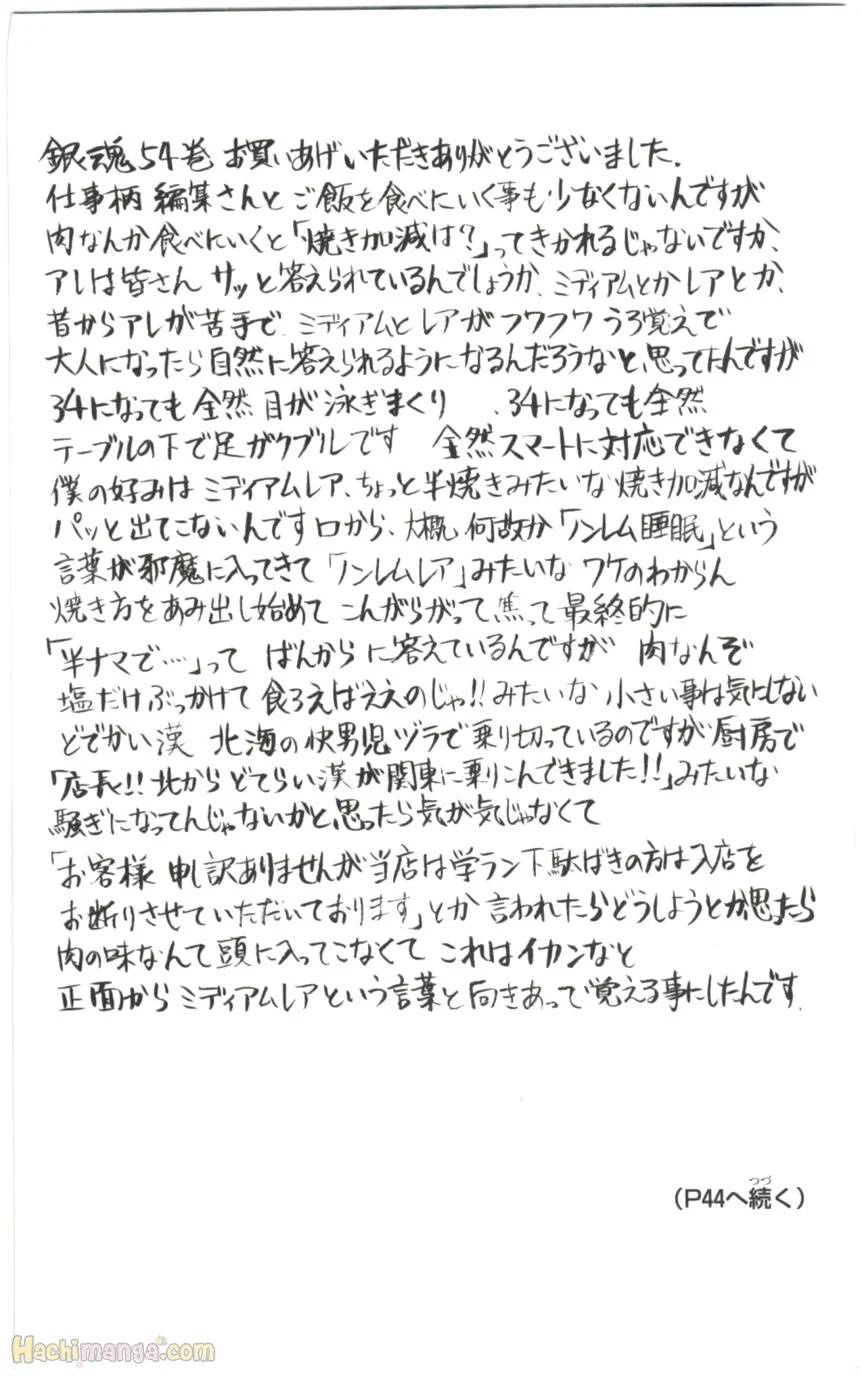 銀魂54巻 お買いあげいただきありがとうございました.
仕事柄 編集さんと ご飯を食べにいく事も少なくないんですが
肉なんか食べにいくと「焼き加減は?」ってきかれるじゃないですか、
アレは皆さん サッと答えられているんでしょうか、ミディアムとかレアとか、
昔からアレが苦手で、ミディアムとレアがフワフワうろ覚えで
大人になったら自然に答えられるようになるんだろうなと、思ってたんですが
34になっても全然目が泳ぎまくり 、34になっても全然
テーブルの下で足ガクブルです 全然スマートに対応できなくて
僕の好みは ミディアムレア、ちょっと半焼きみたいな焼き加減なんですが
パッと出てこないんです口から、大概何故か「ノンレム睡眠」という
言葉が邪魔に入ってきて「ノンレムレア」みたいな ワケのわからん
焼き方をあみ出し始めて こんがらがって、焦って最終的に
「半ナマで…」って ばんからに答えているんですが 肉なんぞ
塩だけぶっかけて食ろえばええのじゃ!!みたいな 小さい事は気にしない
どでかい漢 北海の快男児ヅラで乗り切っているのですが厨房で
「店長!!北からどてらい漢が関東に乗りこんできました!!」みたいな
騒ぎになってんじゃないかと、思ったら気が気じゃなくて
「お客様 申し訳ありませんが当店は学ラン下駄ばきの方は入店を
お断りさせていただいております」とか言われたらどうしようとか思ったら
肉の味なんて頭に入ってこなくて これはイカンなと
正面からミディアムレアという言葉と向きあって覚える事にしたんです.
(P44へ続く)
つづ
Hachimanga.com